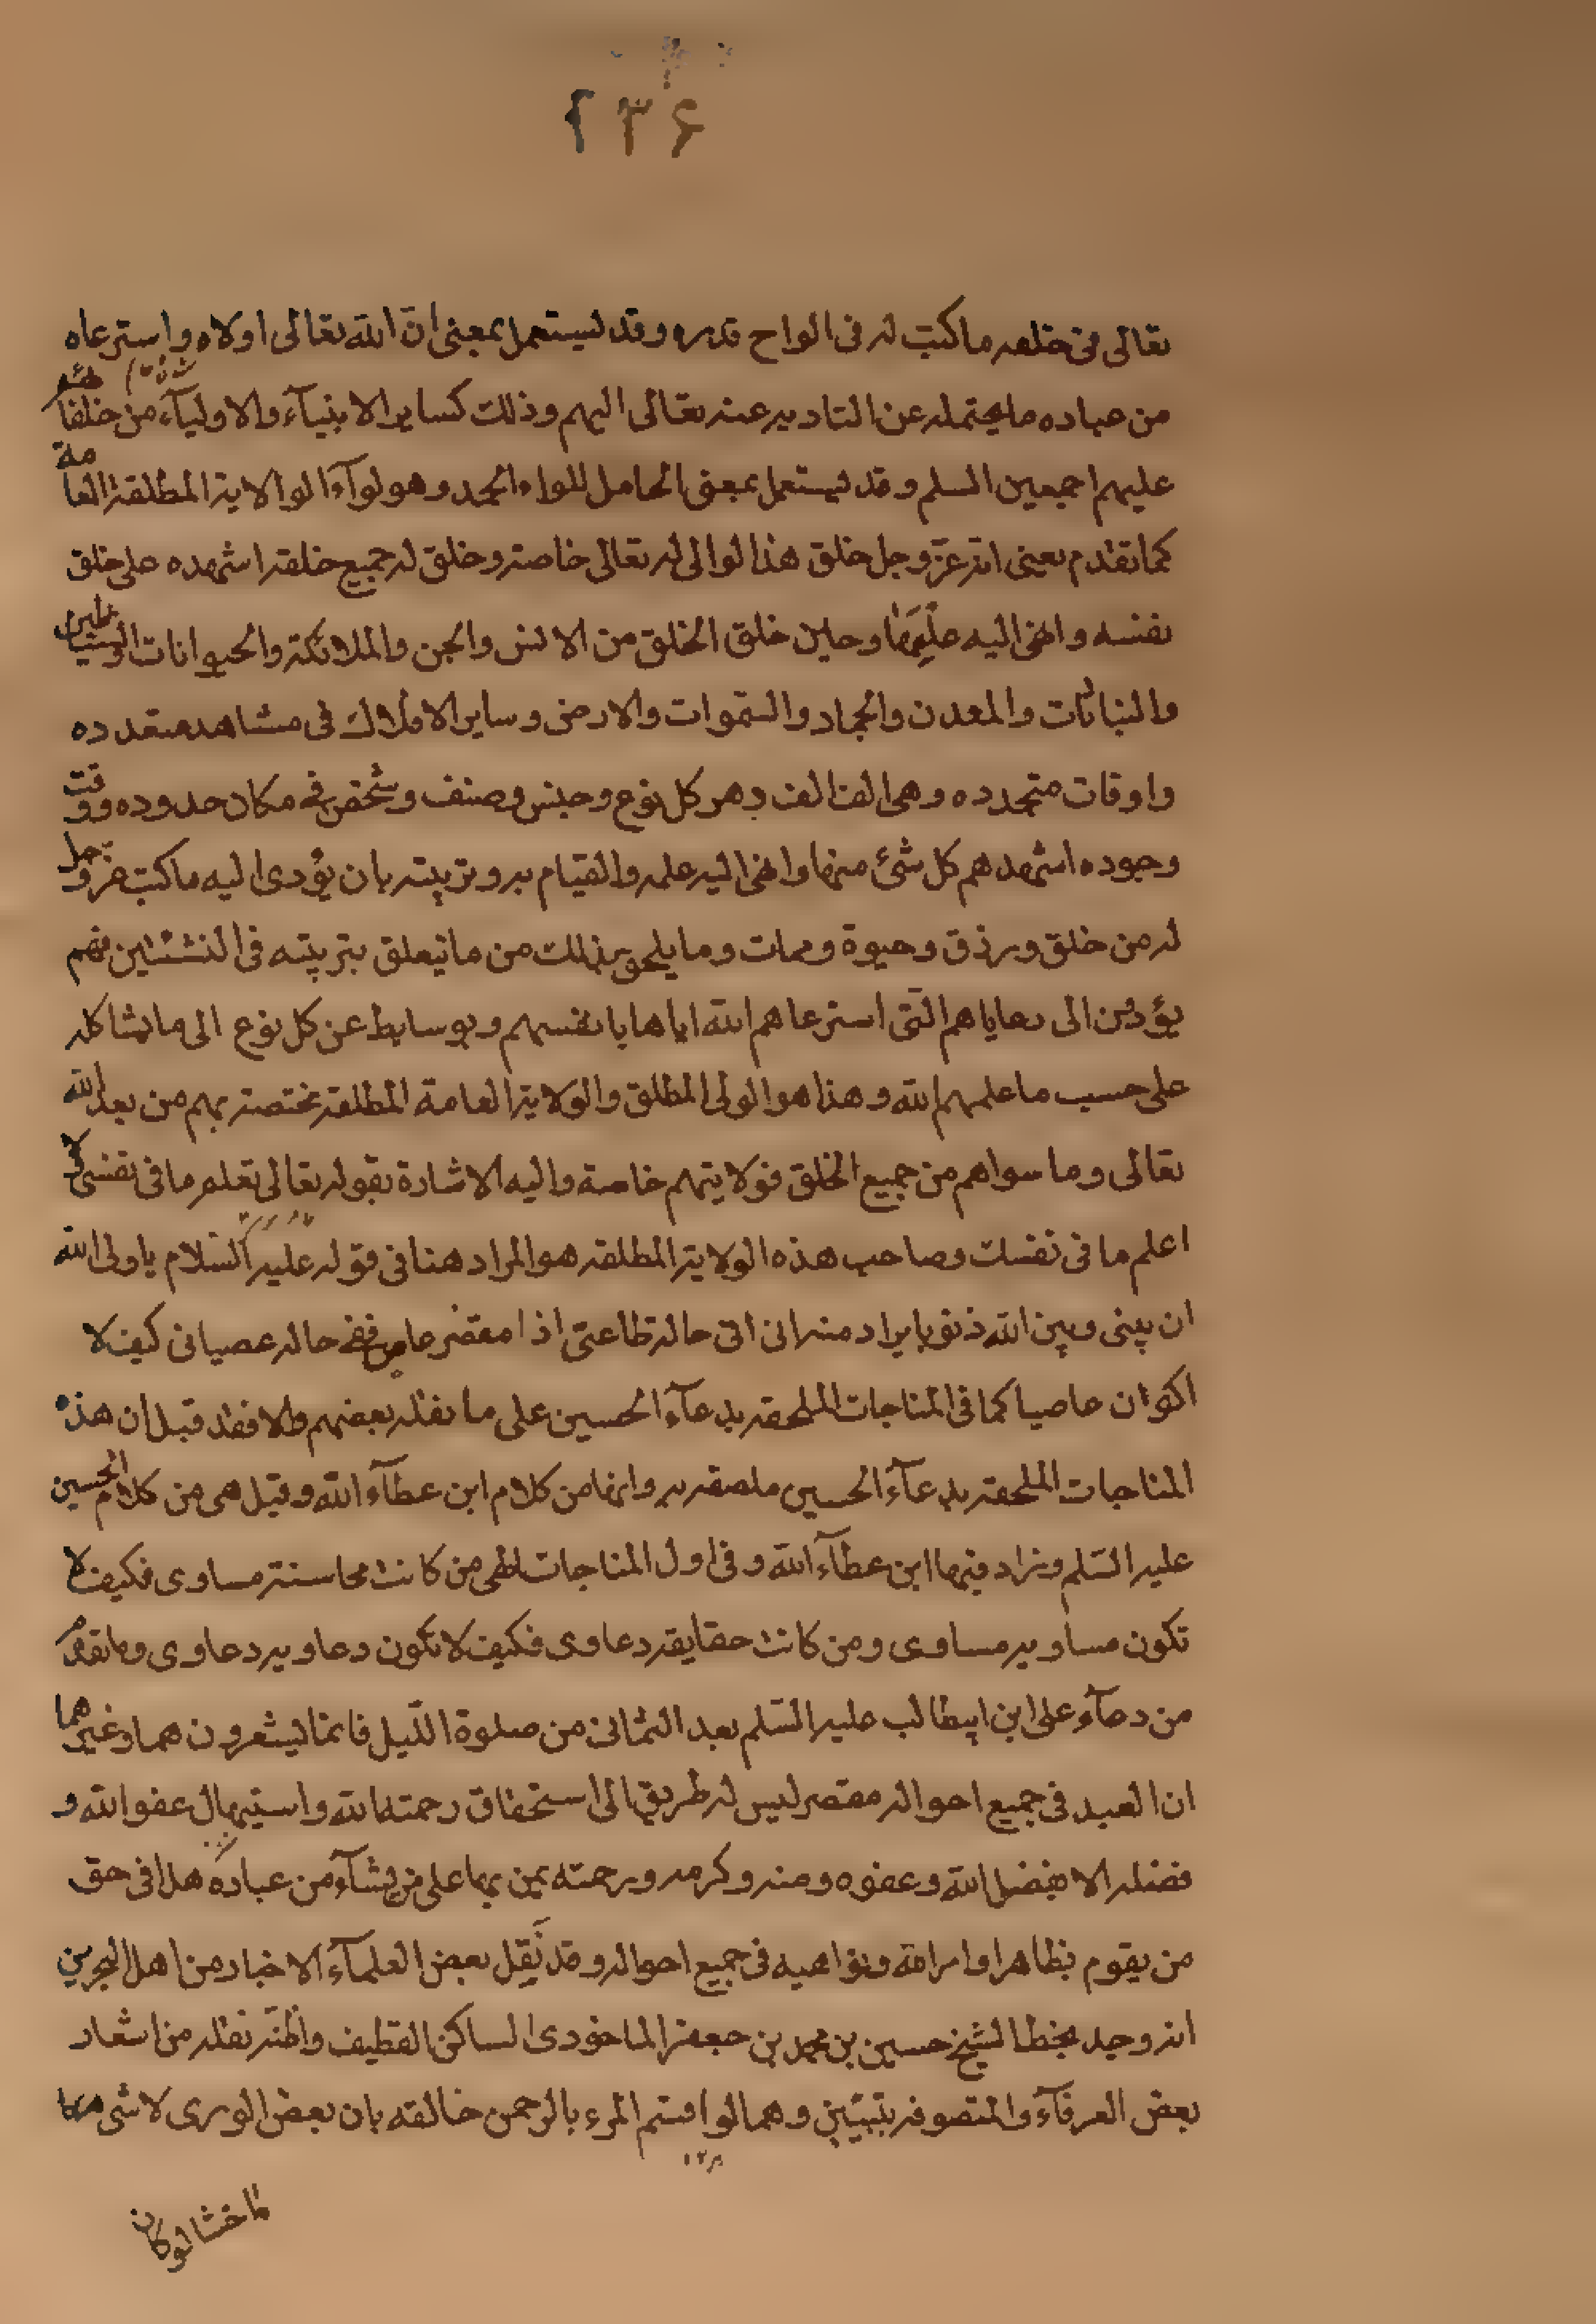 ۲۳۶
تعالى فى خلقه ما كتب له فى الواح قدره وقد يستعمل بمعنى ان الله تعالى اولاه واسترعاه
من عباده ما يحتمله عن التادية عنه تعالى اليهم وذلك كساير الانبيآء والاوليآء من خلفائه
عليهم اجمعين السلم وقد يستعمل بمعنى الحامل للواء الحمد وهو لوآء الولاية المطلقة العامة
كما تقدم يعنى انه عزّ وجل خلق هذا الوالى له تعالى خاصة وخلق له جميع خلقه اشهده على خلق
نفسه وانهى اليه علمها وحين خلق الخلق من الانس والجن والملائكة والحيوانات والشياطين
والنباتات والمعدن والجماد والسّموات والارض وساير الافلاك فى مشاهد متعدده
واوقات متجدده وهى الف الف دهر كل نوع وجنس وصنف وشخص فى مكان حدوده ووقت
وجوده اشهدهم كل شئ منها وانهى اليه علمه والقيام به وتربيته بان يؤدى اليه ما كتب عزّ وجل
له من خلق ورزق وحيوة وممات وما يلحق بذلك من ما يتعلق بتربيته فى النشئتين فهم
يؤدون الى رعاياهم الّتى استرعاهم الله اياها بانفسهم وبوسايط عن كل نوع الى ما يشاكله
على حسب ما علمهم الله وهذا هو الولى المطلق والولاية العامة المطلقة مختصة بهم من بعد الله
تعالى وما سواهم من جميع الخلق فولايتهم خاصة واليه الاشارة بقوله تعالى تعلم ما فى نفسى ولا
اعلم ما فى نفسك وصاحب هذه الولاية المطلقه هو المراد هنا فى قوله عليه السّلام يا ولى الله
ان بينى وبين الله ذنوبا يراد منه انى فى حالة طاعتى اذا مقصر عاص ففى حاله عصيانى كيف لا
اكون عاصيا كما فى المناجات الملحقه بدعآء الحسين على ما نقله بعضهم والا فقد قيل ان هذه
المناجات الملحقه بدعآء الحسين ملصقه به وانها من كلام ابن عطآء الله وقيل هى من كلام الحسين
عليه السّلم وزاد فيها ابن عطآء الله وفى اول المناجات الهى من كانت محاسنه مساوى فكيف لا
تكون مساويه مساوى ومن كانت حقايقه دعاوى فكيف لا تكون دعاويه دعاوى وما تقدم
من دعآء على ابن ابيطالب عليه السّلم بعد الثمانى من صلوة اللّيل فانما يشعرون هما وغيرهما
ان العبد فى جميع احواله مقصر ليس له طريق الى استحقاق رحمته الله واستيهال عفو الله و
فضله الا بفضل الله وعفوه ومنه وكرمه ورحمته يمن بها على من يشآء من عباده هذا فى حق
من يقوم بظاهر اوامر الله ونواهيه فى جميع احواله وقد نَقل بعض العلمآء الاخبار من اهل البحرين
انه وجد بخط الشيخ حسين بن محمد بن جعفر الماحوذى الساكن القطيف واظنّه نقله من اشعار
بعض العرفآء والمتصوفه بيتين وهما لو اقسم المرء بالرحمن خالقه بان بعض الورى لا شى ما
ما حنثا لو كان